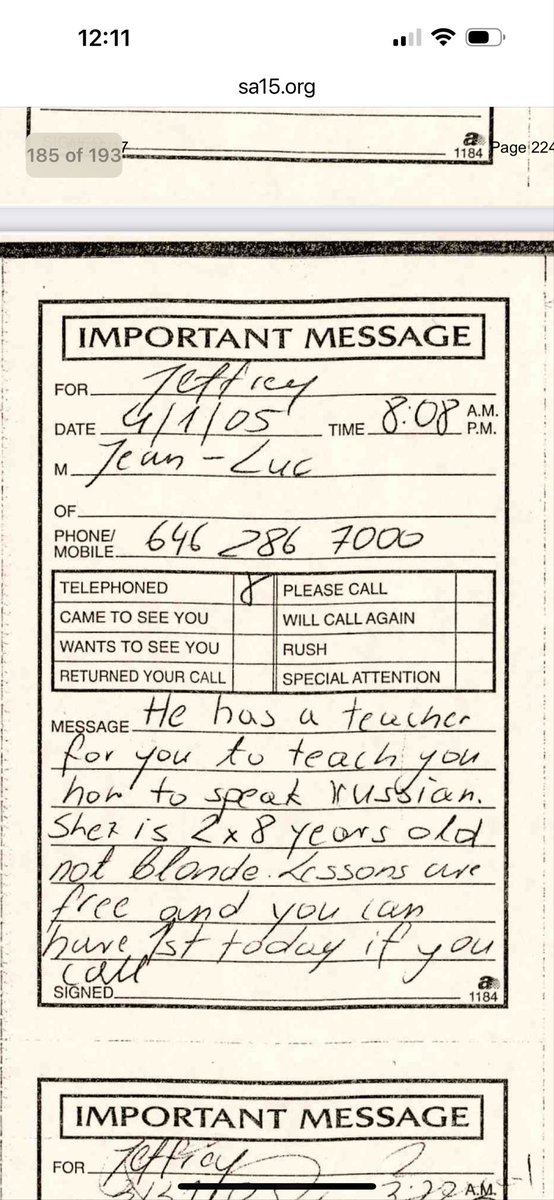 12:11
sa15.org
185 of 193
1184
Page 224
IMPORTANT MESSAGE
FOR Jeffrey
DATE 4/1/05 TIME 8:08 A.M. P.M.
M Jean-Luc
OF
PHONE/MOBILE 646 286 7000
TELEPHONED 8 PLEASE CALL
CAME TO SEE YOU WILL CALL AGAIN
WANTS TO SEE YOU RUSH
RETURNED YOUR CALL SPECIAL ATTENTION
MESSAGE He has a teacher
for you to teach you
how to speak russian.
She is 2x8 years old
not blonde. Lessons are
free and you can
have 1st today if you
call
SIGNED
a 1184
IMPORTANT MESSAGE
FOR Jeffrey
A.M.